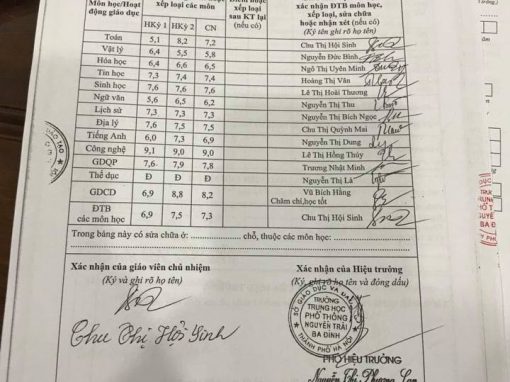 Môn học/Hoạt động giáo dục
xếp loại các môn
HKỳ 1 HKỳ 2 CN
xếp loại sau KT lại (nếu có)
xác nhận ĐTB môn học, xếp loại, sửa chữa hoặc nhận xét (nếu có)
(Ký tên ghi rõ họ tên)
Toán 5,1 8,2 7,2 Chu Thị Hội Sinh
Vật lý 6,4 5,5 5,8 Nguyễn Đức Bình
Hóa học 6,4 6,6 6,5 Ngô Thị Uyên Minh
Tin học 7,3 7,4 7,4 Hoàng Thị Vân
Sinh học 7,6 7,1 7,3 Lê Thị Hoài Thương
Ngữ văn 5,6 6,5 6,2 Nguyễn Thị Thu
Lịch sử 7,3 7,3 7,3 Nguyễn Thị Bích Ngọc
Địa lý 7,6 7,5 7,5 Chu Thị Quỳnh Mai
Tiếng Anh 6,0 7,3 6,9 Nguyễn Thị Dung
Công nghệ 9,1 9,0 9,0 Lê Thị Hồng Thúy
GDQP 7,6 7,9 7,8 Trương Nhật Minh
Thể dục Đ Đ Đ Nguyễn Thị Lã
GDCD 6,9 8,8 8,2 Vũ Bích Hằng
Chăm chỉ,học tốt
ĐTB các môn học 6,9 7,5 7,3 Chu Thị Hội Sinh
Trong bảng này có sửa chữa ở: chỗ, thuộc các môn học:
Xác nhận của giáo viên chủ nhiệm
(Ký và ghi rõ họ tên)
Chu Thị Hội Sinh
Xác nhận của Hiệu trưởng
(Ký, ghi rõ họ tên và đóng dấu)
SỞ GIÁO DỤC VÀ ĐÀO TẠO
TRƯỜNG
TRUNG HỌC
PHỔ THÔNG
NGUYỄN TRÃI
BA ĐÌNH
THÀNH PHỐ HÀ NỘI
PHÓ HIỆU TRƯỞNG
Nguyễn Thị Phương Lan